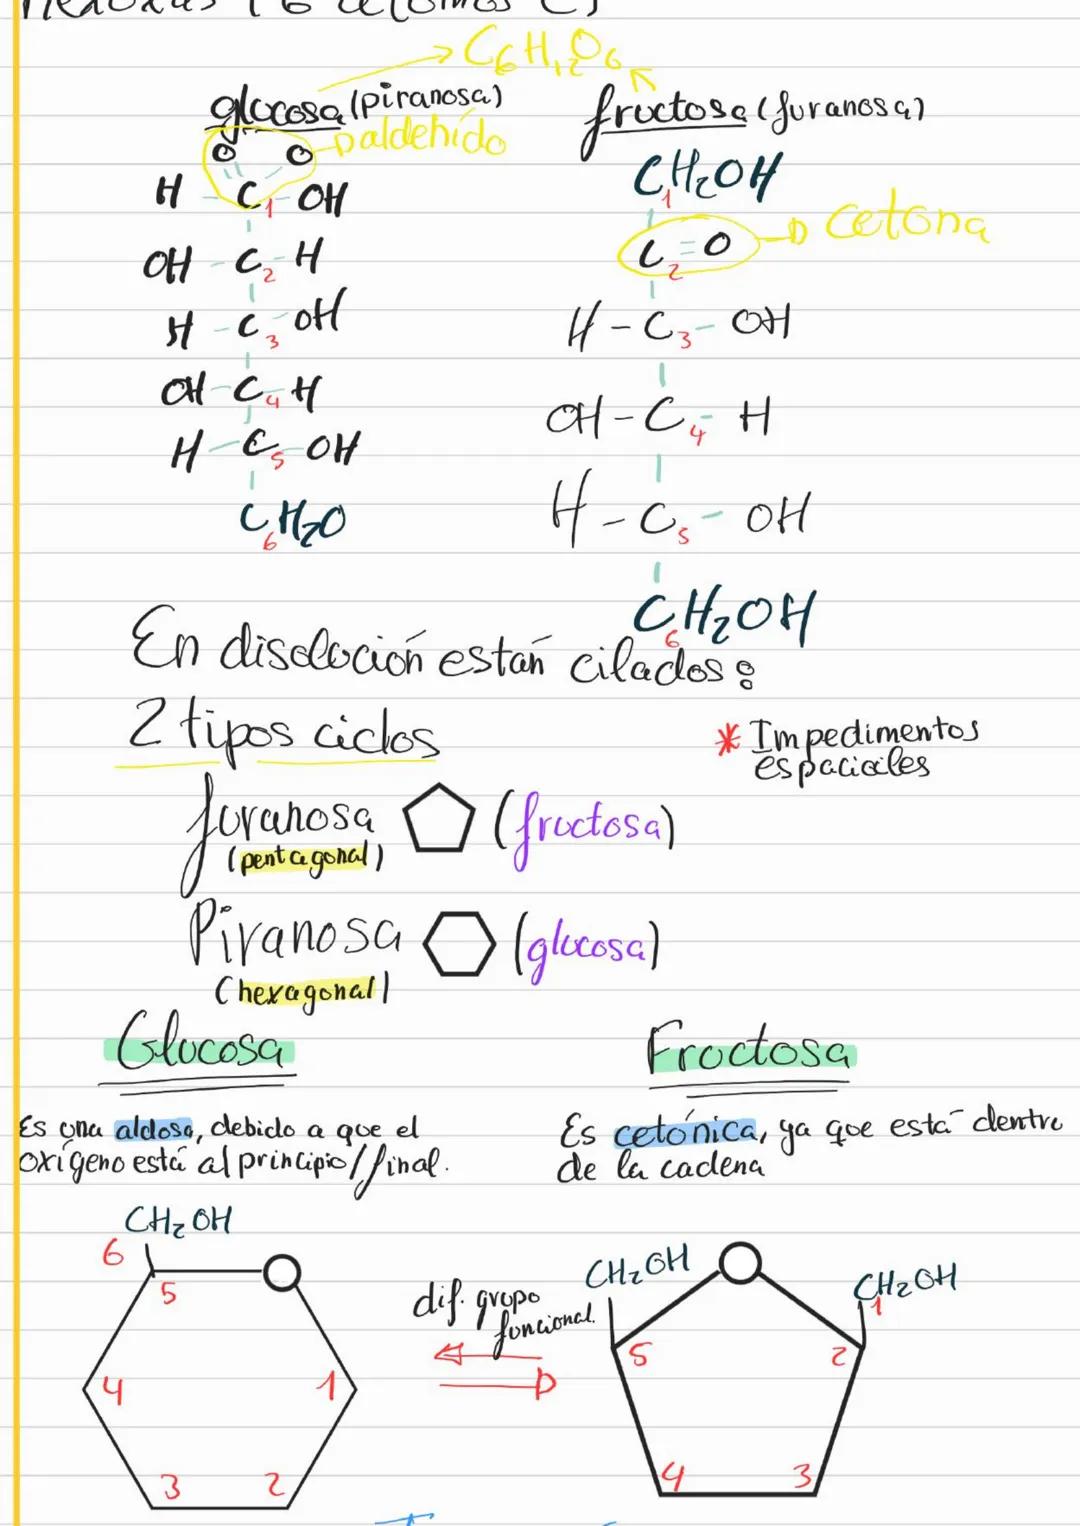 Hexoxas (6 cetomos C)
→ C6H12O6
glucosa (piranosa)
fructosa (furanosa)
O O aldehído
H C1 - OH
OH - C2 - H
H - C3 OH
OH - C4 H
H - C5 - OH
C6H2O
C1H2OH
C2 = O → cetona
H - C3 - OH
OH - C4 - H
H - C5 - OH
C6H2OH
En disolución están cilados:
2 tipos ciclos
* Impedimentos
espaciales
furanosa (fructosa)
(pentagonal)
Piranosa (glucosa)
(hexagonal)
Glucosa
Es una aldosa, debido a que el
oxígeno está al principio/final.
Fructosa
Es cetónica, ya que está dentro
de la cadena
CH2OH
6
5
4
1
3
2
dif. grupo
funcional.
CH2OH
CH2OH
1
5
2
4
3